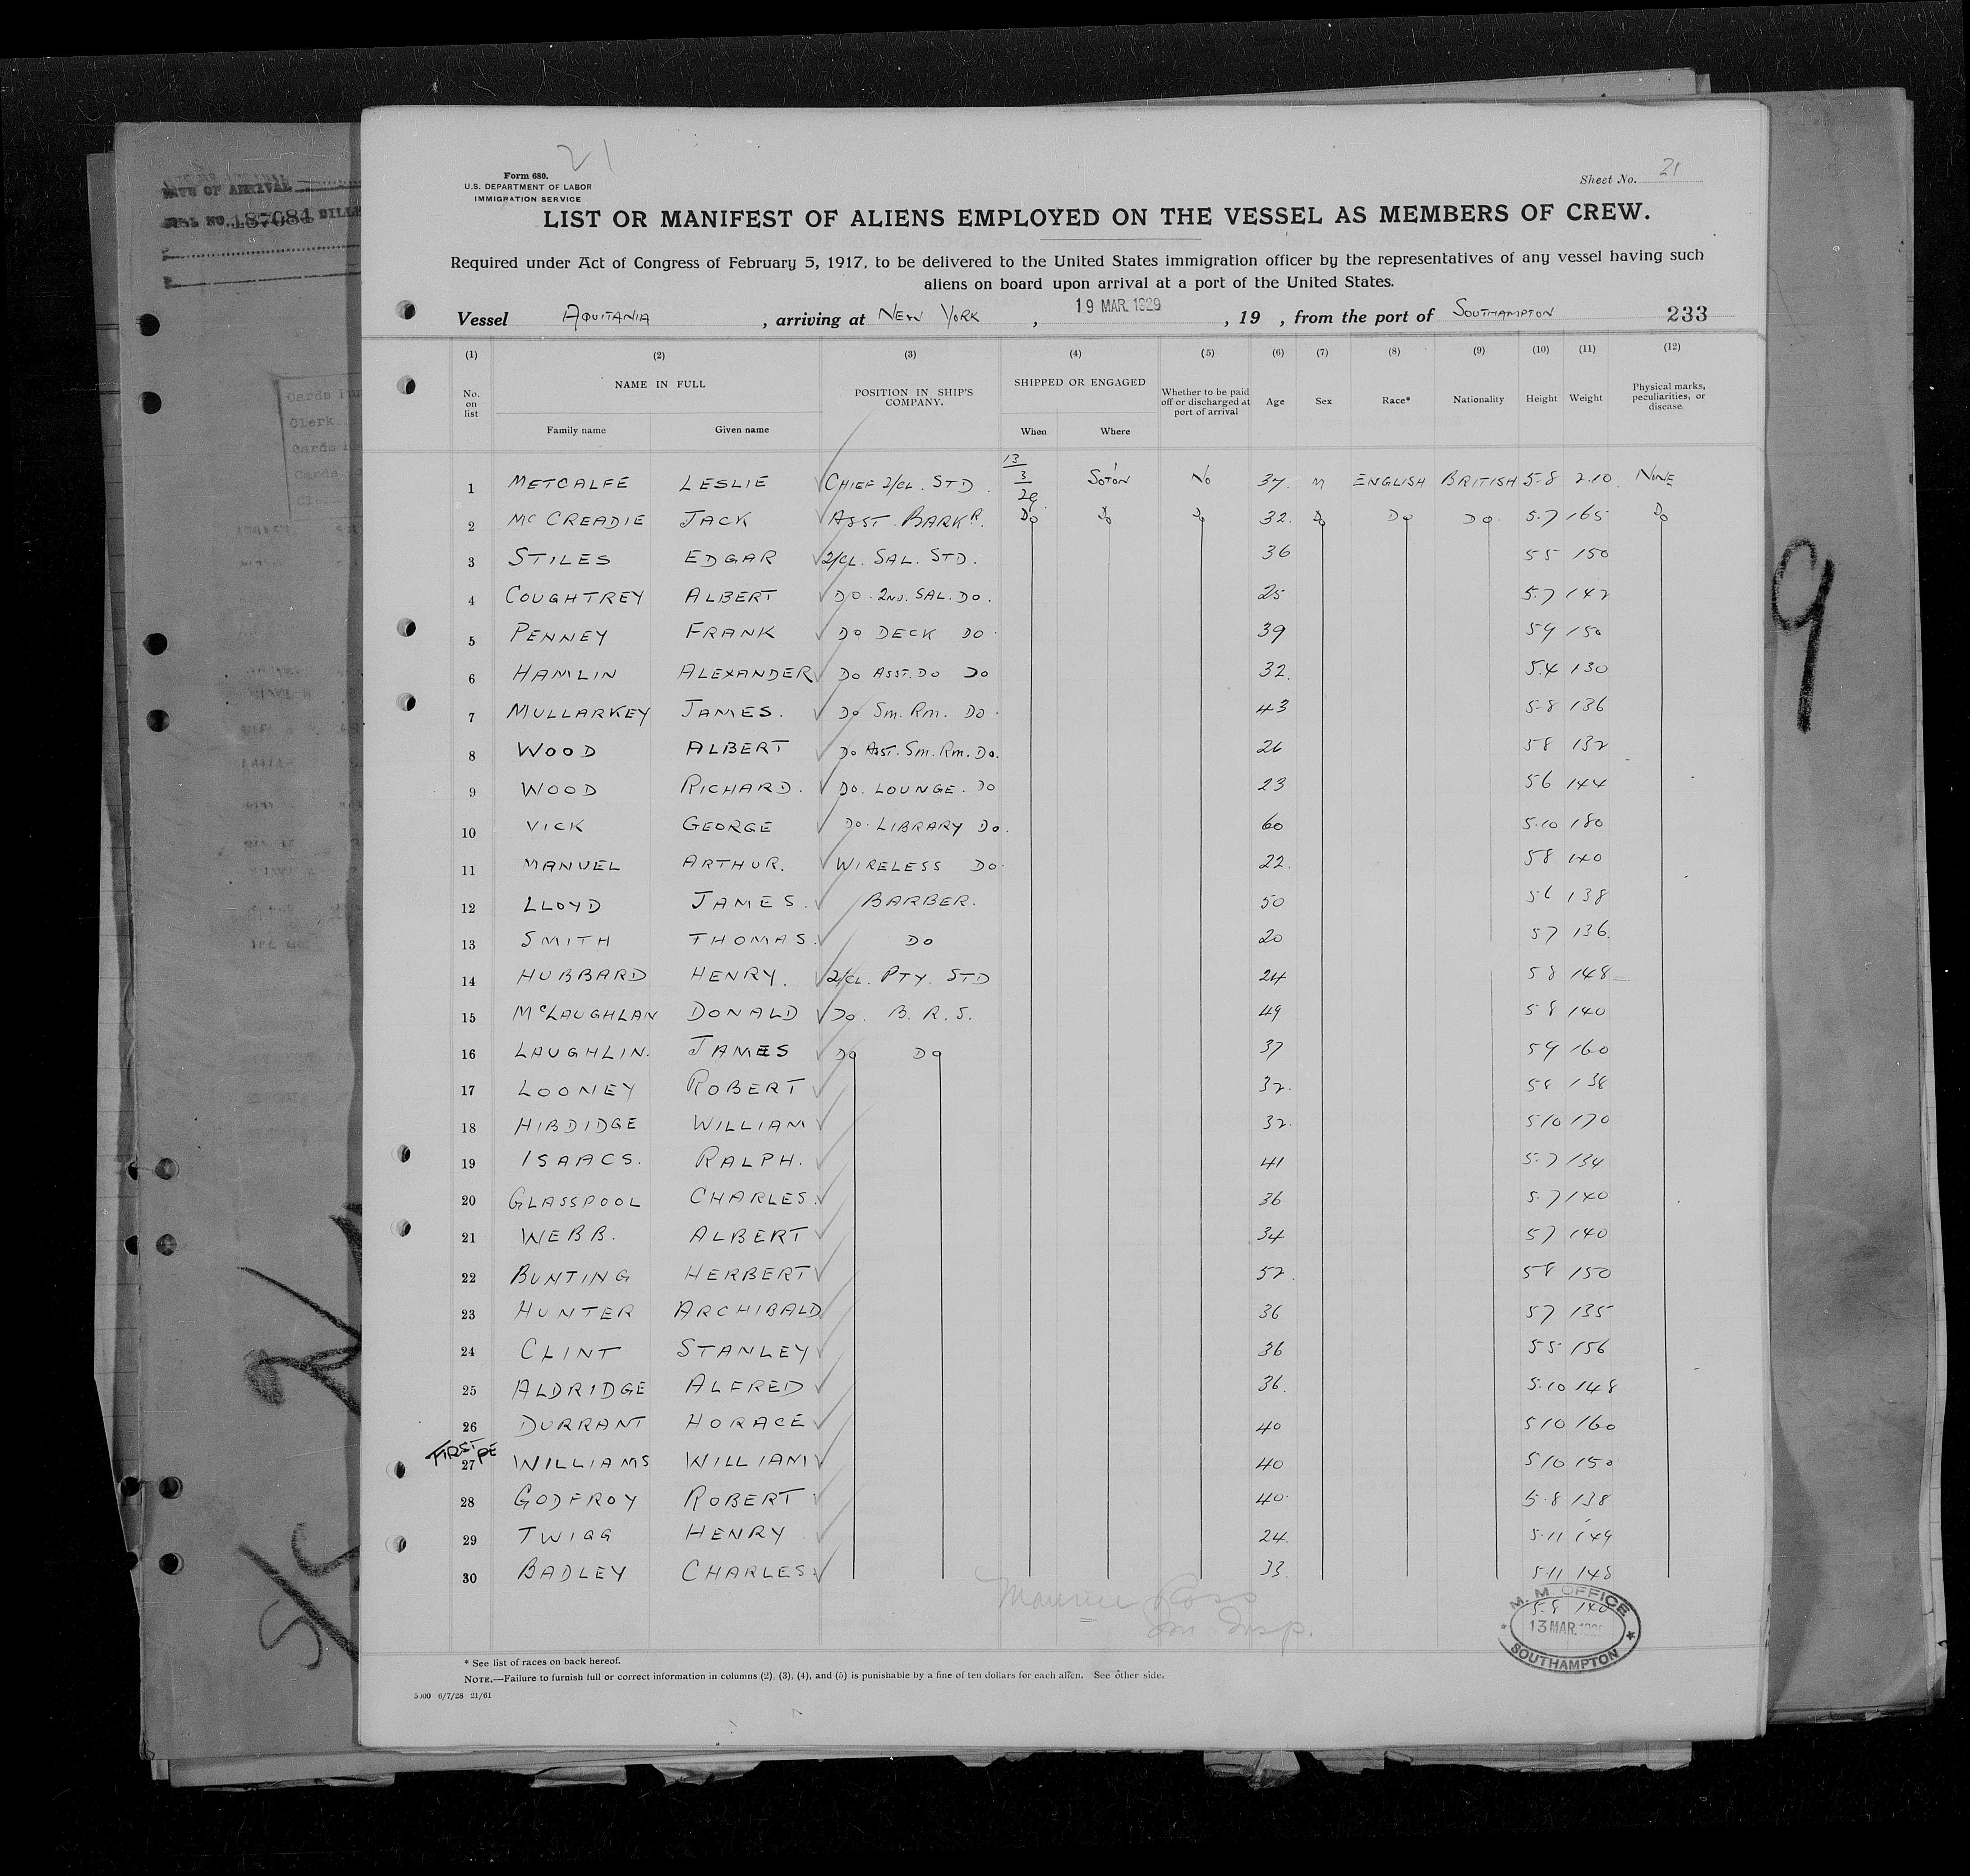 21
Form 680.
U.S. DEPARTMENT OF LABOR
IMMIGRATION SERVICE
Sheet No. 21
LIST OR MANIFEST OF ALIENS EMPLOYED ON THE VESSEL AS MEMBERS OF CREW.
Required under Act of Congress of February 5, 1917, to be delivered to the United States immigration officer by the representatives of any vessel having such
aliens on board upon arrival at a port of the United States.
Vessel AQUITANIA, arriving at NEW YORK, 19 MAR. 1929, 19 , from the port of SOUTHAMPTON 233
(1) (2) (3) (4) (5) (6) (7) (8) (9) (10) (11) (12)
No. on list NAME IN FULL Family name Given name POSITION IN SHIP'S COMPANY. SHIPPED OR ENGAGED When Where Whether to be paid off or discharged at port of arrival Age Sex Race* Nationality Height Weight Physical marks, peculiarities, or disease.
1 METCALFE LESLIE CHIEF 2/CL. STD. 13/3/29 SOTON NO 37 M ENGLISH BRITISH 5-8 210 NINE
2 MC CREADIE JACK ASST. BARKR. DO DO DO 32 DO DO DO 5.7 165 DO
3 STILES EDGAR 2/CL. SAL. STD. 36 55 150
4 COUGHTREY ALBERT DO. 2ND. SAL. DO. 25 5.7 142
5 PENNEY FRANK DO DECK DO. 39 59 150
6 HAMLIN ALEXANDER DO ASST. DO DO 32 5.4 130
7 MULLARKEY JAMES. DO SM. RM. DO. 43 5-8 136
8 WOOD ALBERT DO ASST. SM. RM. DO. 26 58 132
9 WOOD RICHARD. DO. LOUNGE. DO 23 56 144
10 VICK GEORGE DO. LIBRARY DO. 60 5.10 180
11 MANUEL ARTHUR. WIRELESS DO. 22. 58 140
12 LLOYD JAMES. BARBER. 50 56 138
13 SMITH THOMAS. DO 20 57 136.
14 HUBBARD HENRY. 2/CL. PTY. STD 24 58 148
15 McLAUGHLAN DONALD DO. B. R. S. 49 58 140
16 LAUGHLIN. JAMES DO DO 37 59 160
17 LOONEY ROBERT 32. 58 138
18 HIBDIDGE WILLIAM 32. 510 170
19 ISAACS. RALPH. 41 5.7 134
20 GLASSPOOL CHARLES. 36 5.7 140
21 WEBB. ALBERT 34 57 140
22 BUNTING HERBERT 52. 58 150
23 HUNTER ARCHIBALD 36 57 135
24 CLINT STANLEY 36 55 156
25 ALDRIDGE ALFRED 36. 5.10 148
26 DURRANT HORACE 40 510 160
FIRST PE
27 WILLIAMS WILLIAM 40 510 150
28 GODFROY ROBERT 40. 5.8 138
29 TWIGG HENRY 24. 5.11 149
30 BADLEY CHARLES. 33. 5.11 148
5.8 140
Maurice Ross
Im Insp.
M. M. OFFICE
13 MAR. 
SOUTHAMPTON
* See list of races on back hereof.
NOTE.—Failure to furnish full or correct information in columns (2), (3), (4), and (5) is punishable by a fine of ten dollars for each alien. See other side.
5000 6/7/28 21/61
DATE OF ARRIVAL
NO. 187084
Clerk
Cards
9